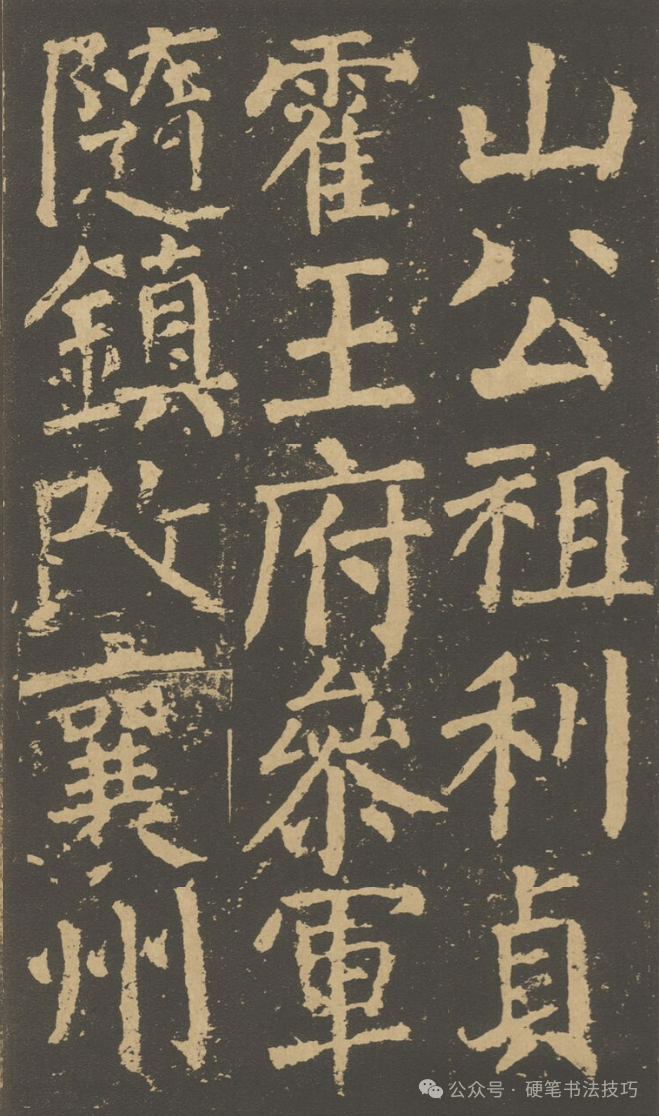 山公祖利貞
霍王府叅軍
隨鎮改襄州
公众号·硬笔书法技巧